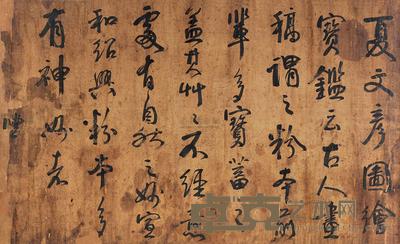 夏文彦圖繪
寶鑑云古人畫
稿謂之粉本前
輩多寶蓄之
蓋其艸々不經意
處有自然之妙宣
和紹興粉本多
有神妙者